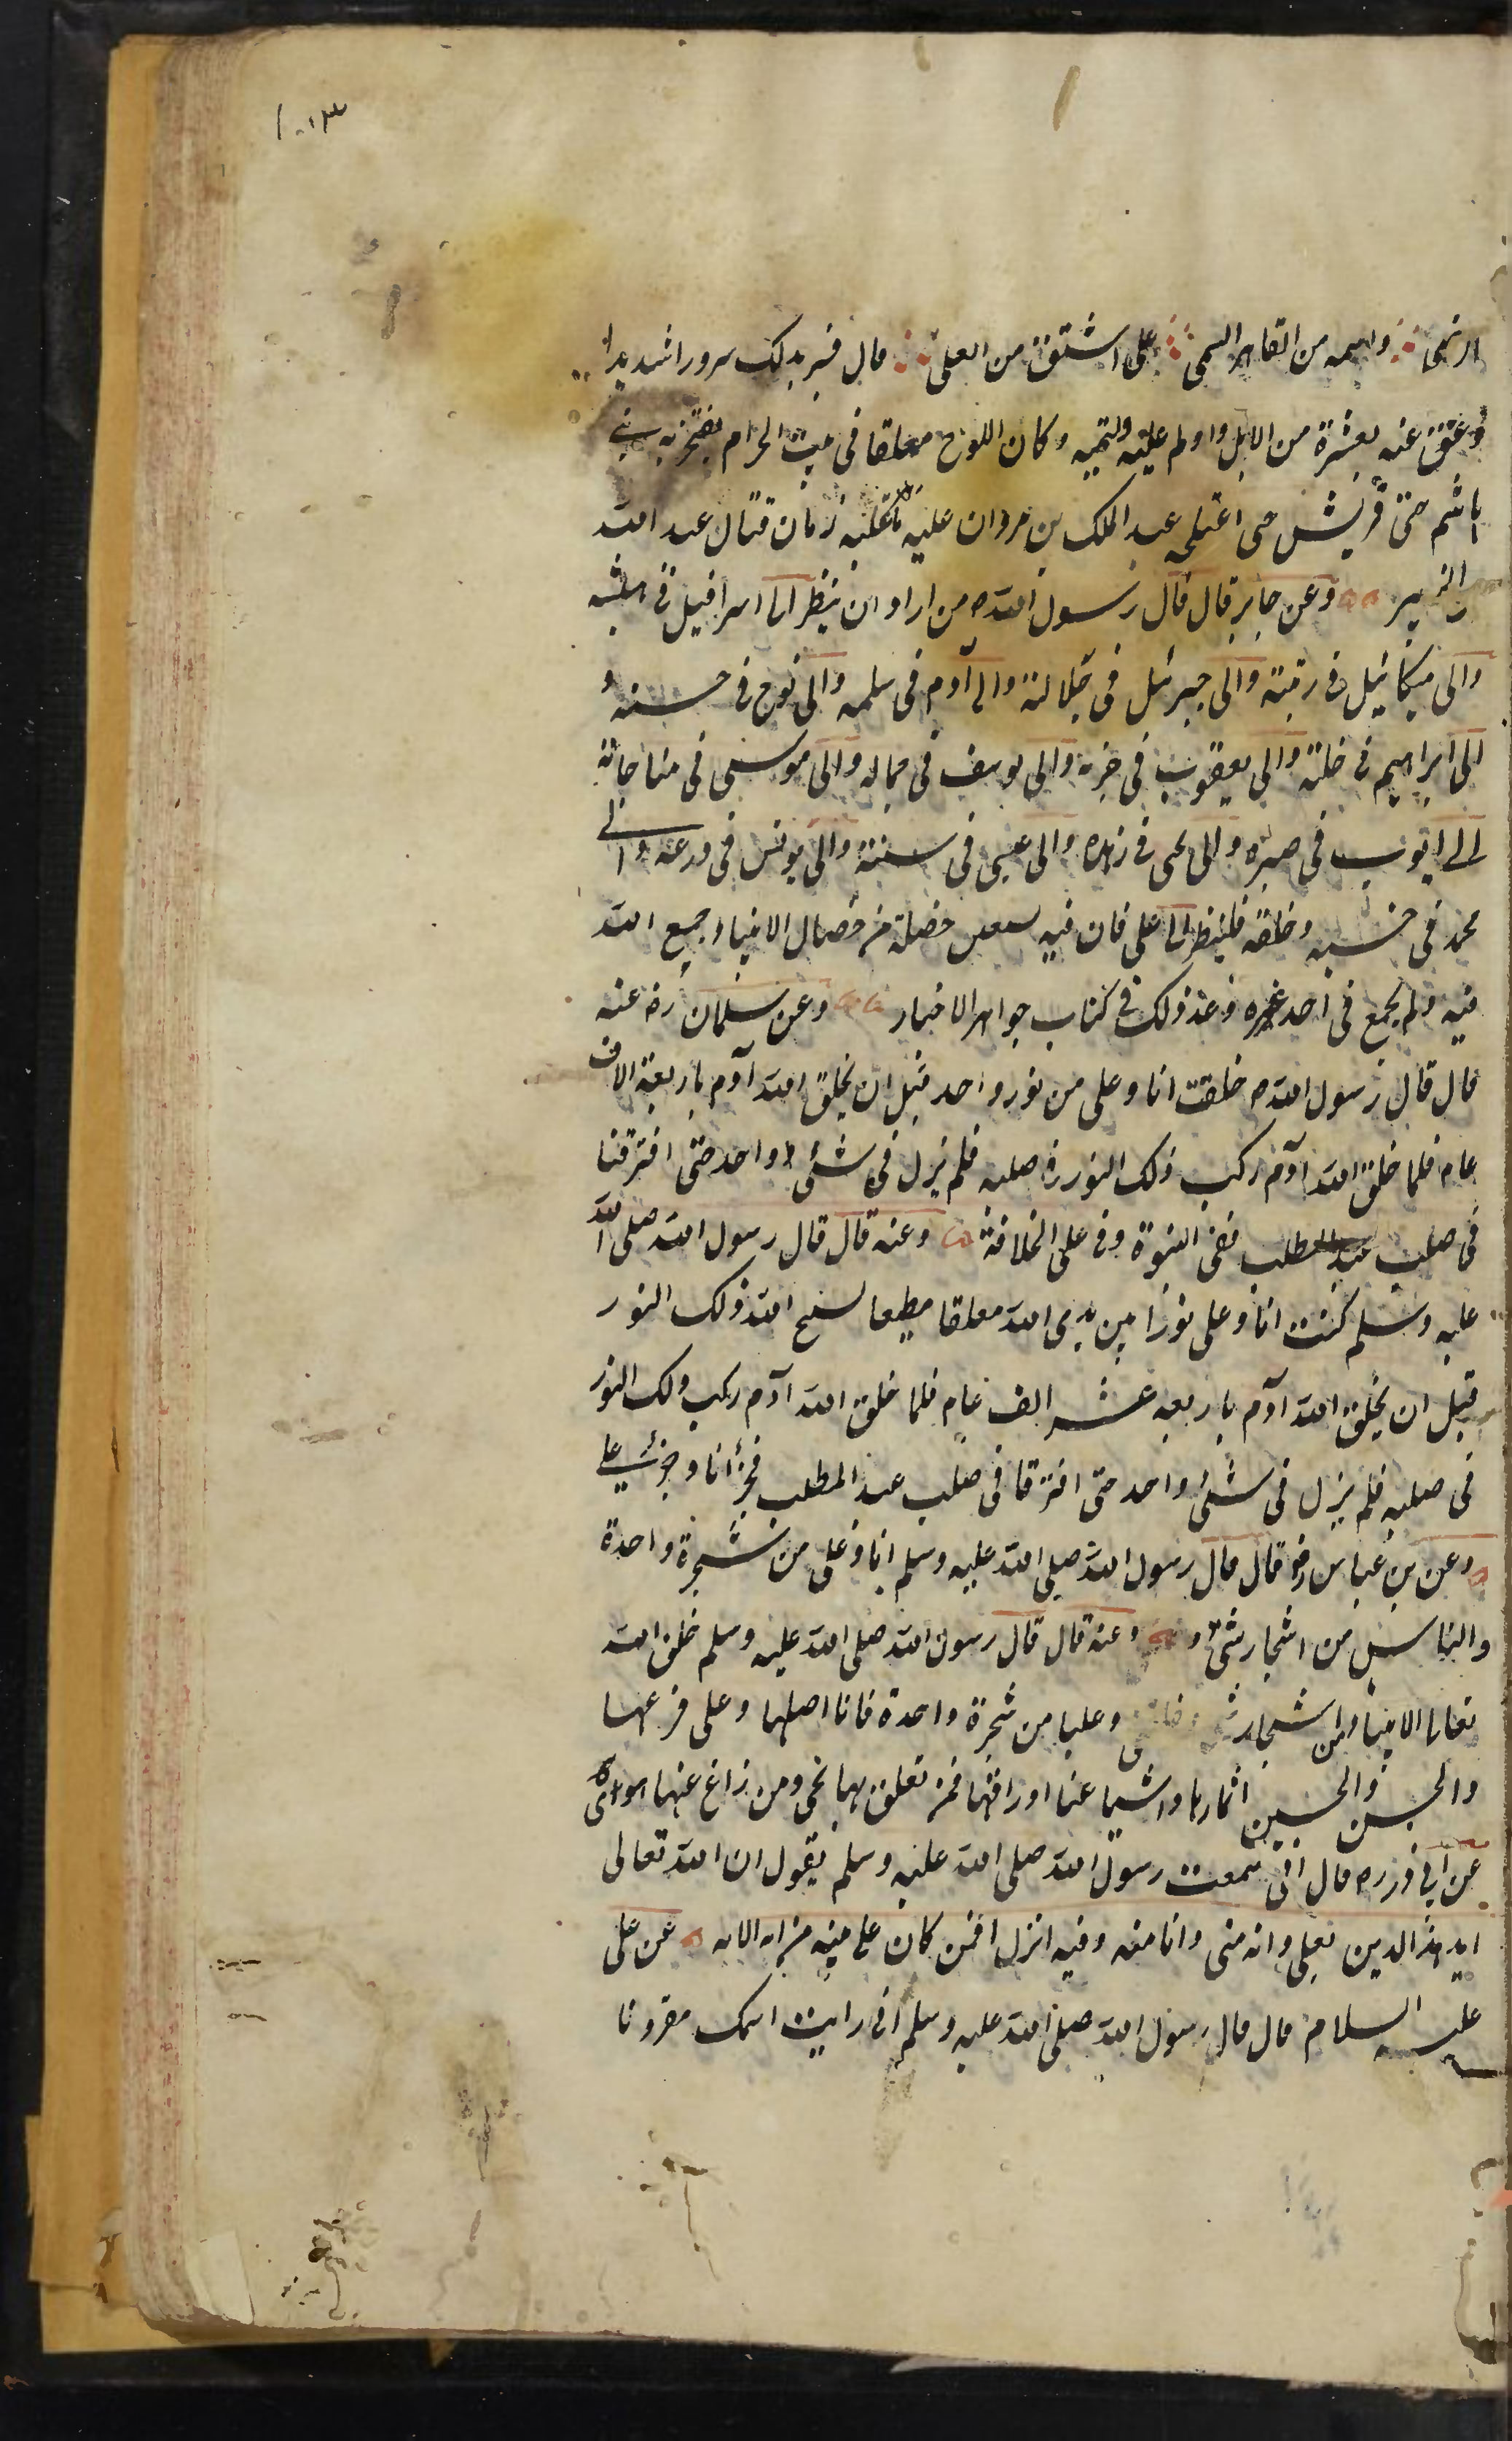 ١٠١٣
الرضی واسمه من القاهر السمی علی اشتق من العلی قال فسر بذلک سرورا شدیدا
وعق عنه بعشرة من الابل واولم علیه وکان اللوح معلقا فی بیت الحرام یفتخر به بنی
هاشم حتی قریش حتی عبد الملک بن مروان علیه زمان قتال عبد الله
الزبیر وعن جابر قال قال رسول الله ص من اراد ان ینظر الی اسرافیل فی هیبته
والی میکائیل فی رتبته والی جبرئیل فی جلالته والی آدم فی سلمه والی نوح فی حسنه و
الی ابراهیم فی خلته والی یعقوب فی حزنه والی یوسف فی جماله والی موسی فی مناجاته
الی ایوب فی صبره والی یحیی فی زهده والی عیسی فی سنته والی یونس فی ورعه والی
محمد فی حسبه وخلقه فلینظر الی علی فان فیه خصلة من خصال الانبیاء جمیع الله
فیه ولم یجمع فی احد غیره وعد ذلک فی کتاب جواهر الاخبار وعن سلمان رض عنه
قال قال رسول الله ص خلقت انا وعلی من نور واحد قبل ان یخلق الله آدم باربعة الاف
عام فلما خلق الله آدم رکب ذلک النور فی صلبه فلم یزل فی شئ واحد حتی افترقنا
فی صلب عبد المطلب ففی النبوة وفی علی الخلافة وعنه قال قال رسول الله صلی الله
علیه وسلم کنت انا وعلی نورا بین یدی الله معلقا مطیعا یسبح الله ذلک النور
قبل ان یخلق الله آدم باربعه عشر الف عام فلما خلق الله آدم رکب ذلک النور
فی صلبه فلم یزل فی شئ واحد حتی افترقا فی صلب عبد المطلب فجزء أنا وجزء علی
وعن بن عباس رض قال قال رسول الله صلی الله علیه وسلم انا وعلی من شجرة واحدة
والناس من اشجار شتی وعنه قال قال رسول الله صلی الله علیه وسلم خلق الله
تعالی الانبیاء من اشجار وعلیا من شجرة واحدة فانا اصلها وعلی فرعها
والحسن والحسین اثمارها واشیاعنا اوراقها فمن تعلق بها نجی ومن زاغ عنها هوی
عن ابی ذر ره قال انی سمعت رسول الله صلی الله علیه وسلم یقول ان الله تعالی
اید هذا الدین بعلی وانه منی وانا منه وفیه انزل افمن کان علی بینه من ربه الایه عن علی
علیه السلام قال قال رسول الله صلی الله علیه وسلم انی رایت اسمک مقرونا